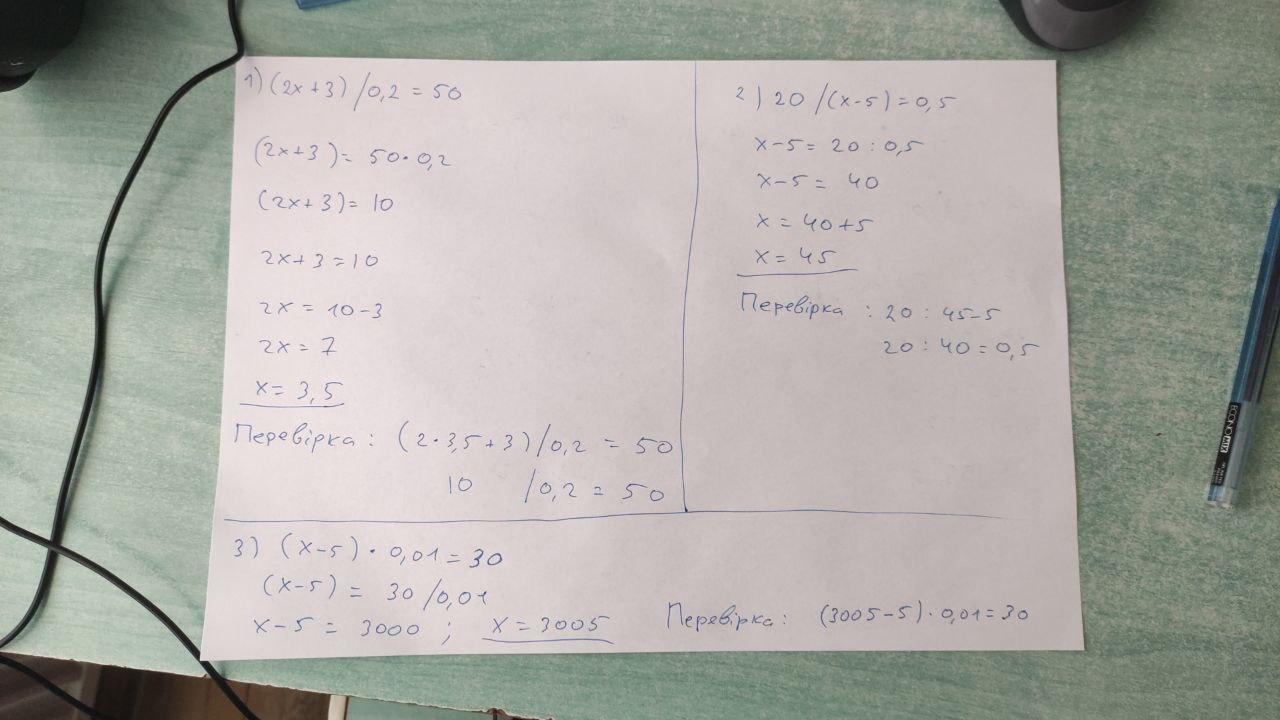 1) (2x+3) /0,2 = 50
(2x+3) = 50·0,2
(2x+3) = 10
2x+3 = 10
2x = 10-3
2x = 7
x = 3,5
Перевірка : (2·3,5+3)/0,2 = 50
10 /0,2 = 50
2) 20 /(x-5) = 0,5
x-5 = 20 : 0,5
x-5 = 40
x = 40+5
x = 45
Перевірка : 20 : 45-5
20 : 40 = 0,5
3) (x-5) · 0,01 = 30
(x-5) = 30 /0,01
x-5 = 3000 ; x = 3005
Перевірка: (3005-5)·0,01=30
ECONOMIX